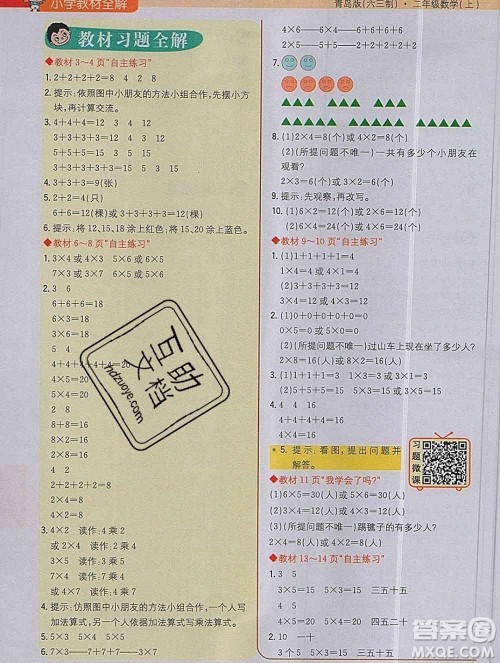 小学教材全解
青岛版(六三制)·二年级数学(上)
教材习题全解
◆教材 3~4 页“自主练习”
1. 2+2+2+2=8 2 4 8
2. 提示:依照图中小朋友的方法小组合作,先摆小方
块,再计算交流。
3. 4+4+4=12 3 4 12
3+3+3+3=12 4 3 12
5+5+5=15 3 5 15
3+3+3+3+3=15 5 3 15
4. 3+3+3=9(张)
5. 2+2=4(只)
6+6=12(棵) 或 3+3+3+3=12(棵)
6. 提示:将 12、15、18 涂上红色,将 15、20 涂上蓝色。
◆教材 6~8 页“自主练习”
1. 3×4 或 4×3 5×6 或 6×5
7×3 或 3×7 5×3 或 3×5
2. 3 6
6+6+6=18
6×3=18
3×6=18
5 4
4+4+4+4+4=20
4×5=20
5×4=20
4 2
2+2+2+2=8
2×4=8
4×2=8
3. 4×2 读作:4 乘 2
或 2×4 读作:2 乘 4
5×4 读作:5 乘 4
或 4×5 读作:4 乘 5
4. 提示:仿照图中小朋友的方法小组合作,一个人写
加法算式,另一个人依加法算式写乘法算式。
5. 5×3 5×4 5×2
6. 7×3——7+7+7——3×7
4×6——6+6+6+6——6×4
2×5——5+5——5×2
7.
8. (1)2×4=8 或 4×2=8
(2)(所提问题不唯一)一共有多少个小朋友在
观看?
2×3=6(个) 或 3×2=6(个)
9. 提示:先观察,再改写。
10. (1)2×6=12(个) 或 6×2=12(个)
(2)3×4=12(个) 或 4×3=12(个)
◆教材 9~10 页“自主练习”
1. (1)1+1+1+1=4
(2)1+1+1=3
(3)3+3+3+3=12
2. (1)0+0+0+0+0=0
(2)0×5=0 或 5×0=0
(3)(所提问题不唯一)过山车上现在坐了多少人?
3. (1)4×1=4 1×3=3 或 3×1=3
(2)5×1=5 或 1×5=5
4. 4 4 16
4+4+4+4=16
4×4=16
5. 提示:看图,提出问题并
解答。
习题微课
◆教材 11 页“我学会了吗?”
(1)6×5=30(人) 或 5×6=30(人)
(2)(所提问题不唯一)踢毽子的有多少人?
2×4=8(人) 或 4×2=8(人)
◆教材 13~14 页“自主练习”
1. 3 5
3×5=15 5×3=15 三五十五
4 5
4×5=20 5×4=20 四五二十
2. 10 一十
互助文档
hdzuoye.com
答案圈